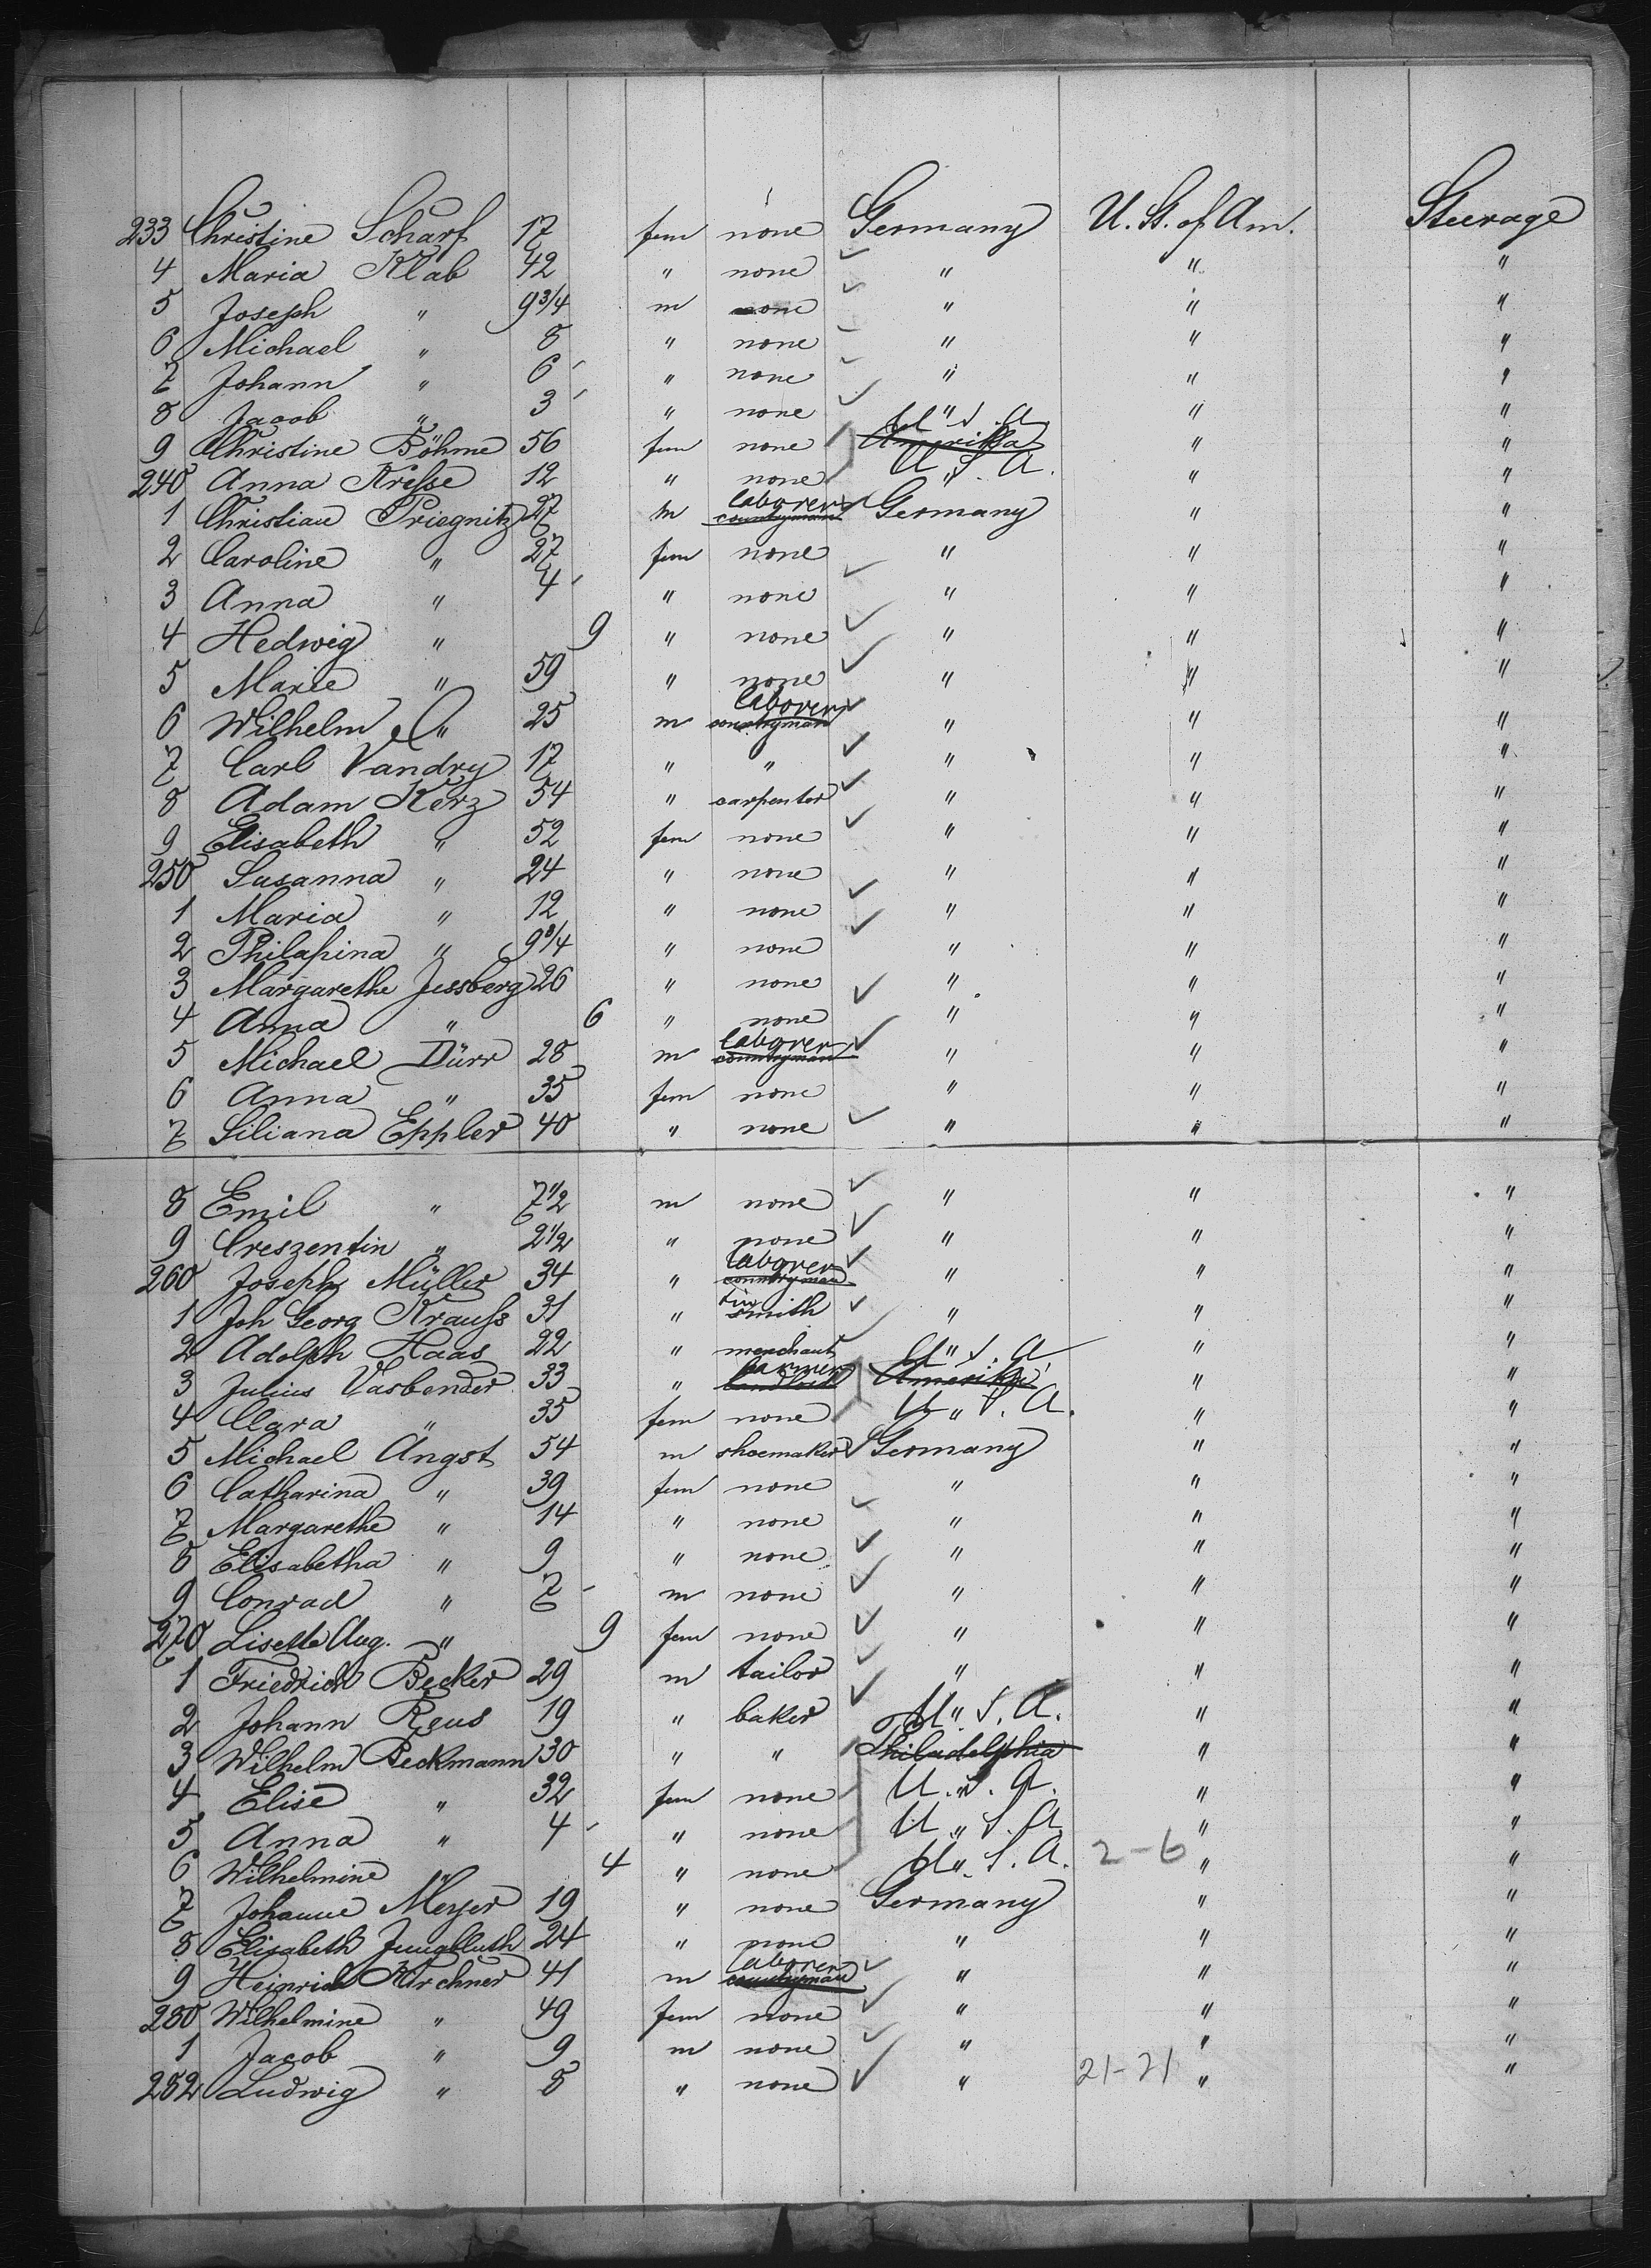 233 Christine Scharf 17 fem none Germany U. St. of Am. Steerage
4 Maria Klab 42 " none " " "
5 Joseph " 9 3/4 m none " " "
6 Michael " 8 " none " " "
7 Johann " 6 " none " " "
8 Jacob " 3 " none " " "
9 Christine Böhme 56 fem none U.S.A. Amerika " "
240 Anna Kresse 12 " none U.S.A. " "
1 Christian Priegnitz 27 m laborer countryman Germany " "
2 Caroline " 27 fem none " " "
3 Anna " 4 " none " " "
4 Hedwig " 9 " none " " "
5 Marie " 59 " none " " "
6 Wilhelm " 25 m laborer countryman " " "
7 Carl Vandry 17 " " " " "
8 Adam Kerz 54 " carpenter " " "
9 Elisabeth " 52 fem none " " "
250 Susanna " 24 " none " " "
1 Maria " 12 " none " " "
2 Philapina " 9 3/4 " none " " "
3 Margarethe Jessberg 26 " none " " "
4 Anna " 6 " none " " "
5 Michael Dürr 28 m laborer countryman " " "
6 Anna " 35 fem none " " "
7 Siliana Eppler 40 " none " " "
8 Emil " 7 1/2 m none " " "
9 Creszentin " 2 1/2 " none " " "
260 Joseph Müller 34 " laborer countryman " " "
1 Joh Georg Krauss 31 " tin smith " " "
2 Adolph Haas 22 " merchant " " "
3 Julius Vasbender 33 " farmer landlord U.S.A. Amerika " "
4 Clara " 35 fem none U.S.A. " "
5 Michael Angst 54 m shoemaker Germany " "
6 Catharina " 39 fem none " " "
7 Margarethe " 14 " none " " "
8 Elisabetha " 9 " none " " "
9 Conrad " 7 m none " " "
270 Lisette Aug. " 9 fem none " " "
1 Friedrich Becker 29 m tailor " " "
2 Johann Reus 19 " baker " " "
3 Wilhelm Beckmann 30 " " U.S.A. Philadelphia " "
4 Elise " 32 fem none U.S.A. " "
5 Anna " 4 " none U.S.A. " "
6 Wilhelmine " 4 " none U.S.A. 2-6 " "
7 Johanne Meyer 19 " none Germany " "
8 Elisabeth Jungbluth 24 " none " " "
9 Heinrich Kirchner 41 m laborer countryman " " "
280 Wilhelmine " 49 fem none " " "
1 Jacob " 9 m none " " "
282 Ludwig " 8 " none " 21-21 " "